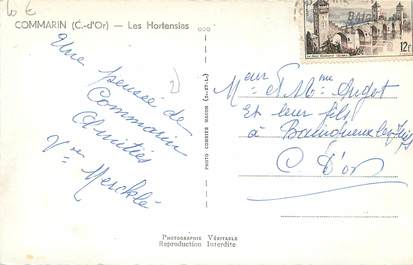 10 €
COMMARIN (C.-d'Or) — Les Hortensias
12F
Une pensée de
Commarin
Amitiés
Vve Mercklé
2)
PHOTO COMBIER MACON (S.-et-L.)
Meur et Mme
et leur fils
à
C. D'or
PHOTOGRAPHIE VÉRITABLE
Reproduction Interdite